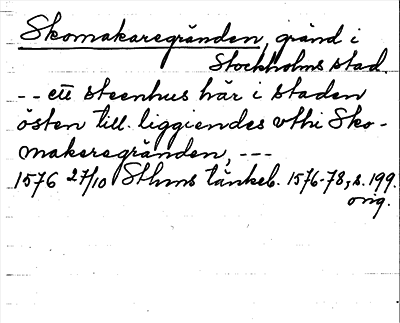 Skomakaregränden, gränd i
Stockholms stad.
-- ett steenhus här i staden
östen till liggiendes vthi Sko-
makeregränden, ---
1576 27/10 Sthms tänkeb. 1576-78, s. 199.
orig.